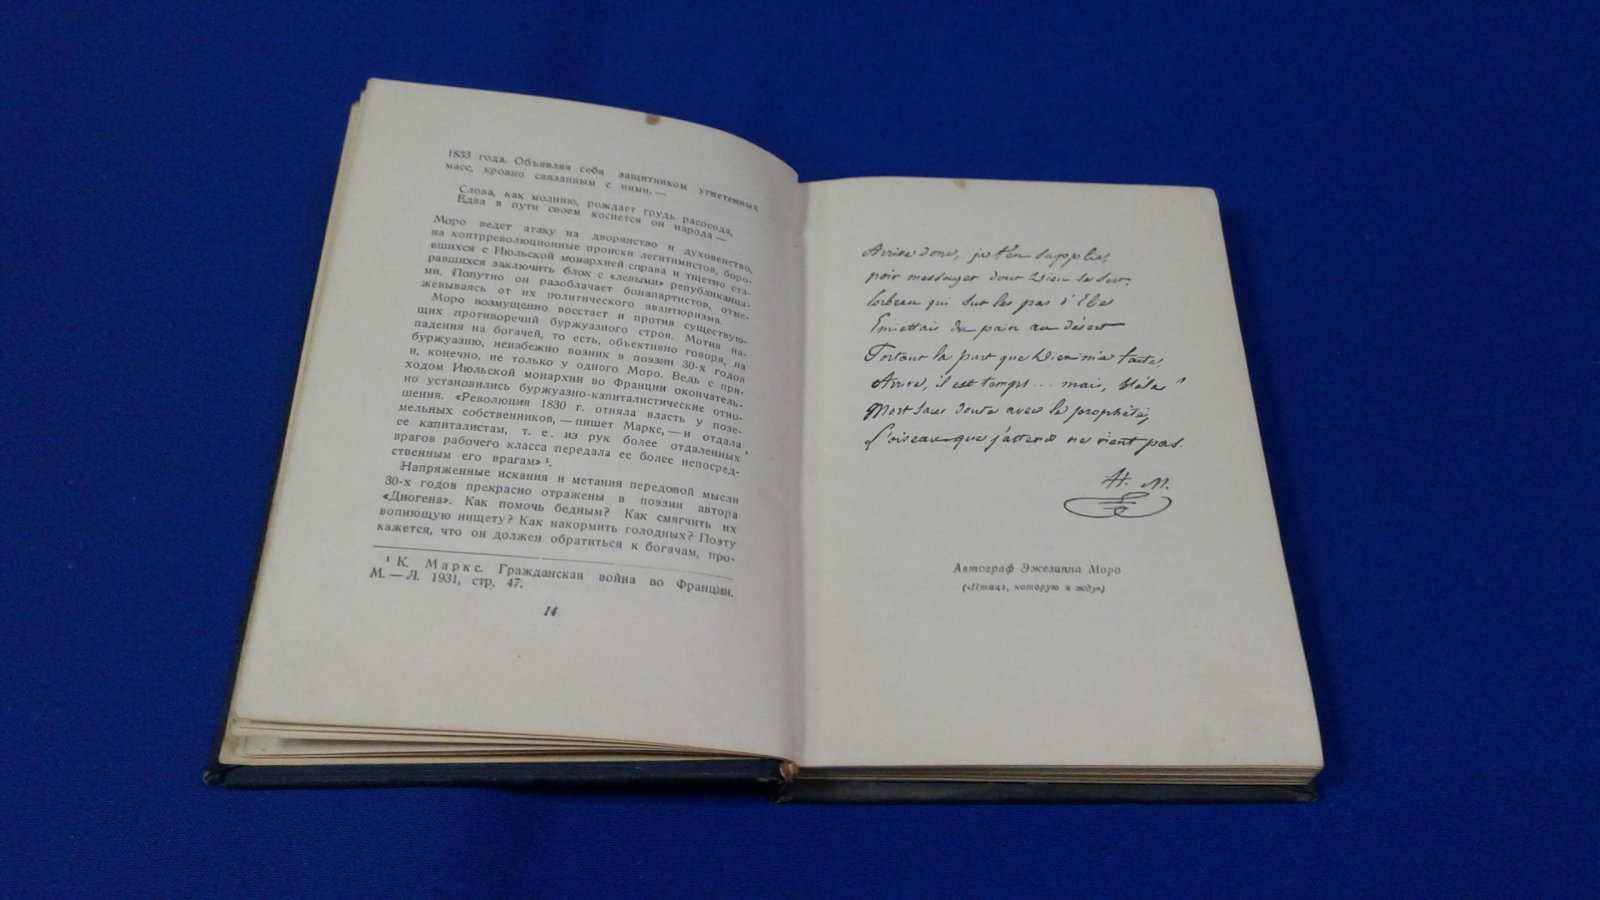 1833 года. Объявляя себя защитником угнетенных
масс, кровно связанным с ними, —
Слова, как молнию, рождает грудь рапсода,
Едва в пути своем коснется он народа —
Моро ведет атаку на дворянство и духовенство,
на контрреволюционные происки легитимистов, боро-
вшихся с Июльской монархией справа и тщетно ста-
равшихся заключить блок с «левыми» республиканца-
ми. Попутно он разоблачает бонапартистов, отме-
жевываясь от их политического авантюризма.
Моро возмущенно восстает и против существую-
щих противоречий буржуазного строя. Мотив на-
падения на богачей, то есть, объективно говоря, на
буржуазию, неизбежно возник в поэзии 30-х годов
и, конечно, не только у одного Моро. Ведь с при-
ходом Июльской монархии во Франции окончатель-
но установились буржуазно-капиталистические отно-
шения. «Революция 1830 г. отняла власть у позе-
мельных собственников, — пишет Маркс, — и отдала
ее капиталистам, т. е. из рук более отдаленных
врагов рабочего класса передала ее более непосред-
ственным его врагам» ¹.
Напряженные искания и метания передовой мысли
30-х годов прекрасно отражены в поэзии автора
«Диогена». Как помочь бедным? Как смягчить их
вопиющую нищету? Как накормить голодных? Поэту
кажется, что он должен обратиться к богачам, про-
¹ К. Маркс. Гражданская война во Франции.
М. — Л. 1931, стр. 47.
14
Arrive donc, je t'en supplie,
noir messager dont Dieu se sert
Corbeau qui sur les pas d'Elie
Emiettais du pain au désert
Portant la part que Dieu m'a faite
Arrive, il est temps... mais, hélas!
Mort sans doute avec le prophète,
L'oiseau que j'attend ne vient pas.
H. M.
Автограф Эжезиппа Моро
(«Птица, которую я жду»)